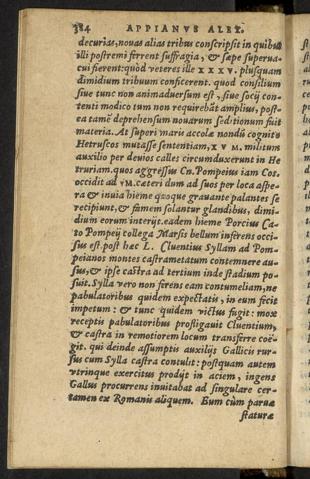 384 APPIANVS ALEX.
decurias, nouas alias tribus conscripsit in quibus
illi postremi ferrent suffragia, & sæpe superua-
cui fierent: quòd veteres ille XXXV. plusquam
dimidium tribuum conficerent. quod consilium
siue tunc non animaduersum est, siue socij con-
tenti modico tum non requirebāt amplius, post-
ea tamē deprehensum nouarum seditionum fuit
materia. At superi maris accolæ nondū cognito
Hetruscos mutasse sententiam, XV M. militum
auxilio per deuios calles circumduxerunt in He
truriam. quos aggressus Cn. Pompeius iam Cos.
occidit ad VM. cæteri dum ad suos per loca aspe-
ra & inuia hieme quoque grauante palantes se
recipiunt, & famem solantur glandibus, dimi-
dium eorum interijt. eadem hieme Porcius Ca-
to Pompeij collega Marsis bellum inferens occi-
sus est. post hæc L. Cluentius Syllam ad Pom-
peianos montes castrametatum contemnere au-
sus, & ipse castra ad tertium inde stadium po-
suit. Sylla vero non ferens eam contumeliam, ne
pabulatoribus quidem expectatis, in eum fecit
impetum: & tunc quidem victus fugit: mox
receptis pabulatoribus profligauit Cluentium,
& castra in remotiorem locum transferre coë-
git. qui deinde assumptis auxilijs Gallicis rur-
sus cum Sylla castra contulit: postquam autem
vtrinque exercitus prodijt in aciem, ingens
Gallus procurrens inuitabat ad singulare cer-
tamen ex Romanis aliquem. Eum cùm paruæ
staturæ